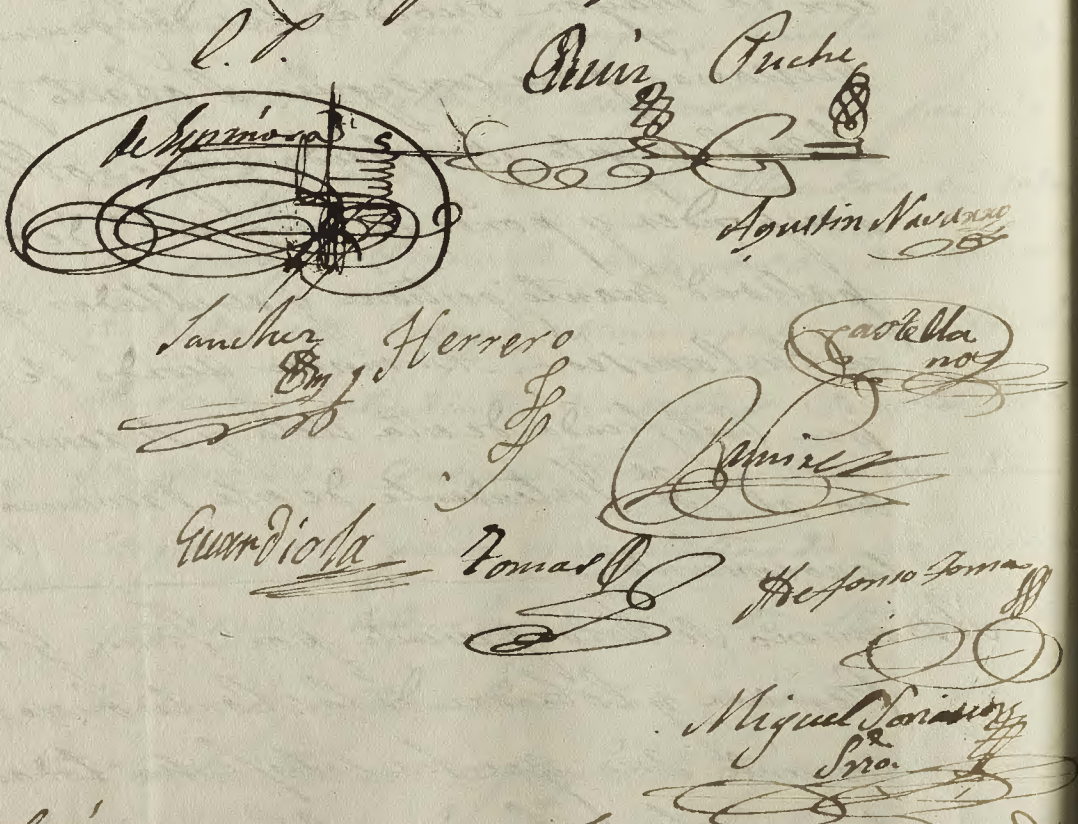 C. P.
Ruiz Puche
de Espinosa
Agustin Navarro
Sanchez Herrero
Castella
nos
Ramirez
Guardiola Tomas
Ildefonso Tomas
Miguel
Srio.